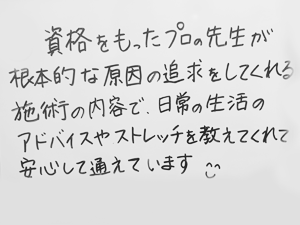 資格をもったプロの先生が
根本的な原因の追求をしてくれる
施術の内容で、日常の生活の
アドバイスやストレッチを教えてくれて
安心して通えています